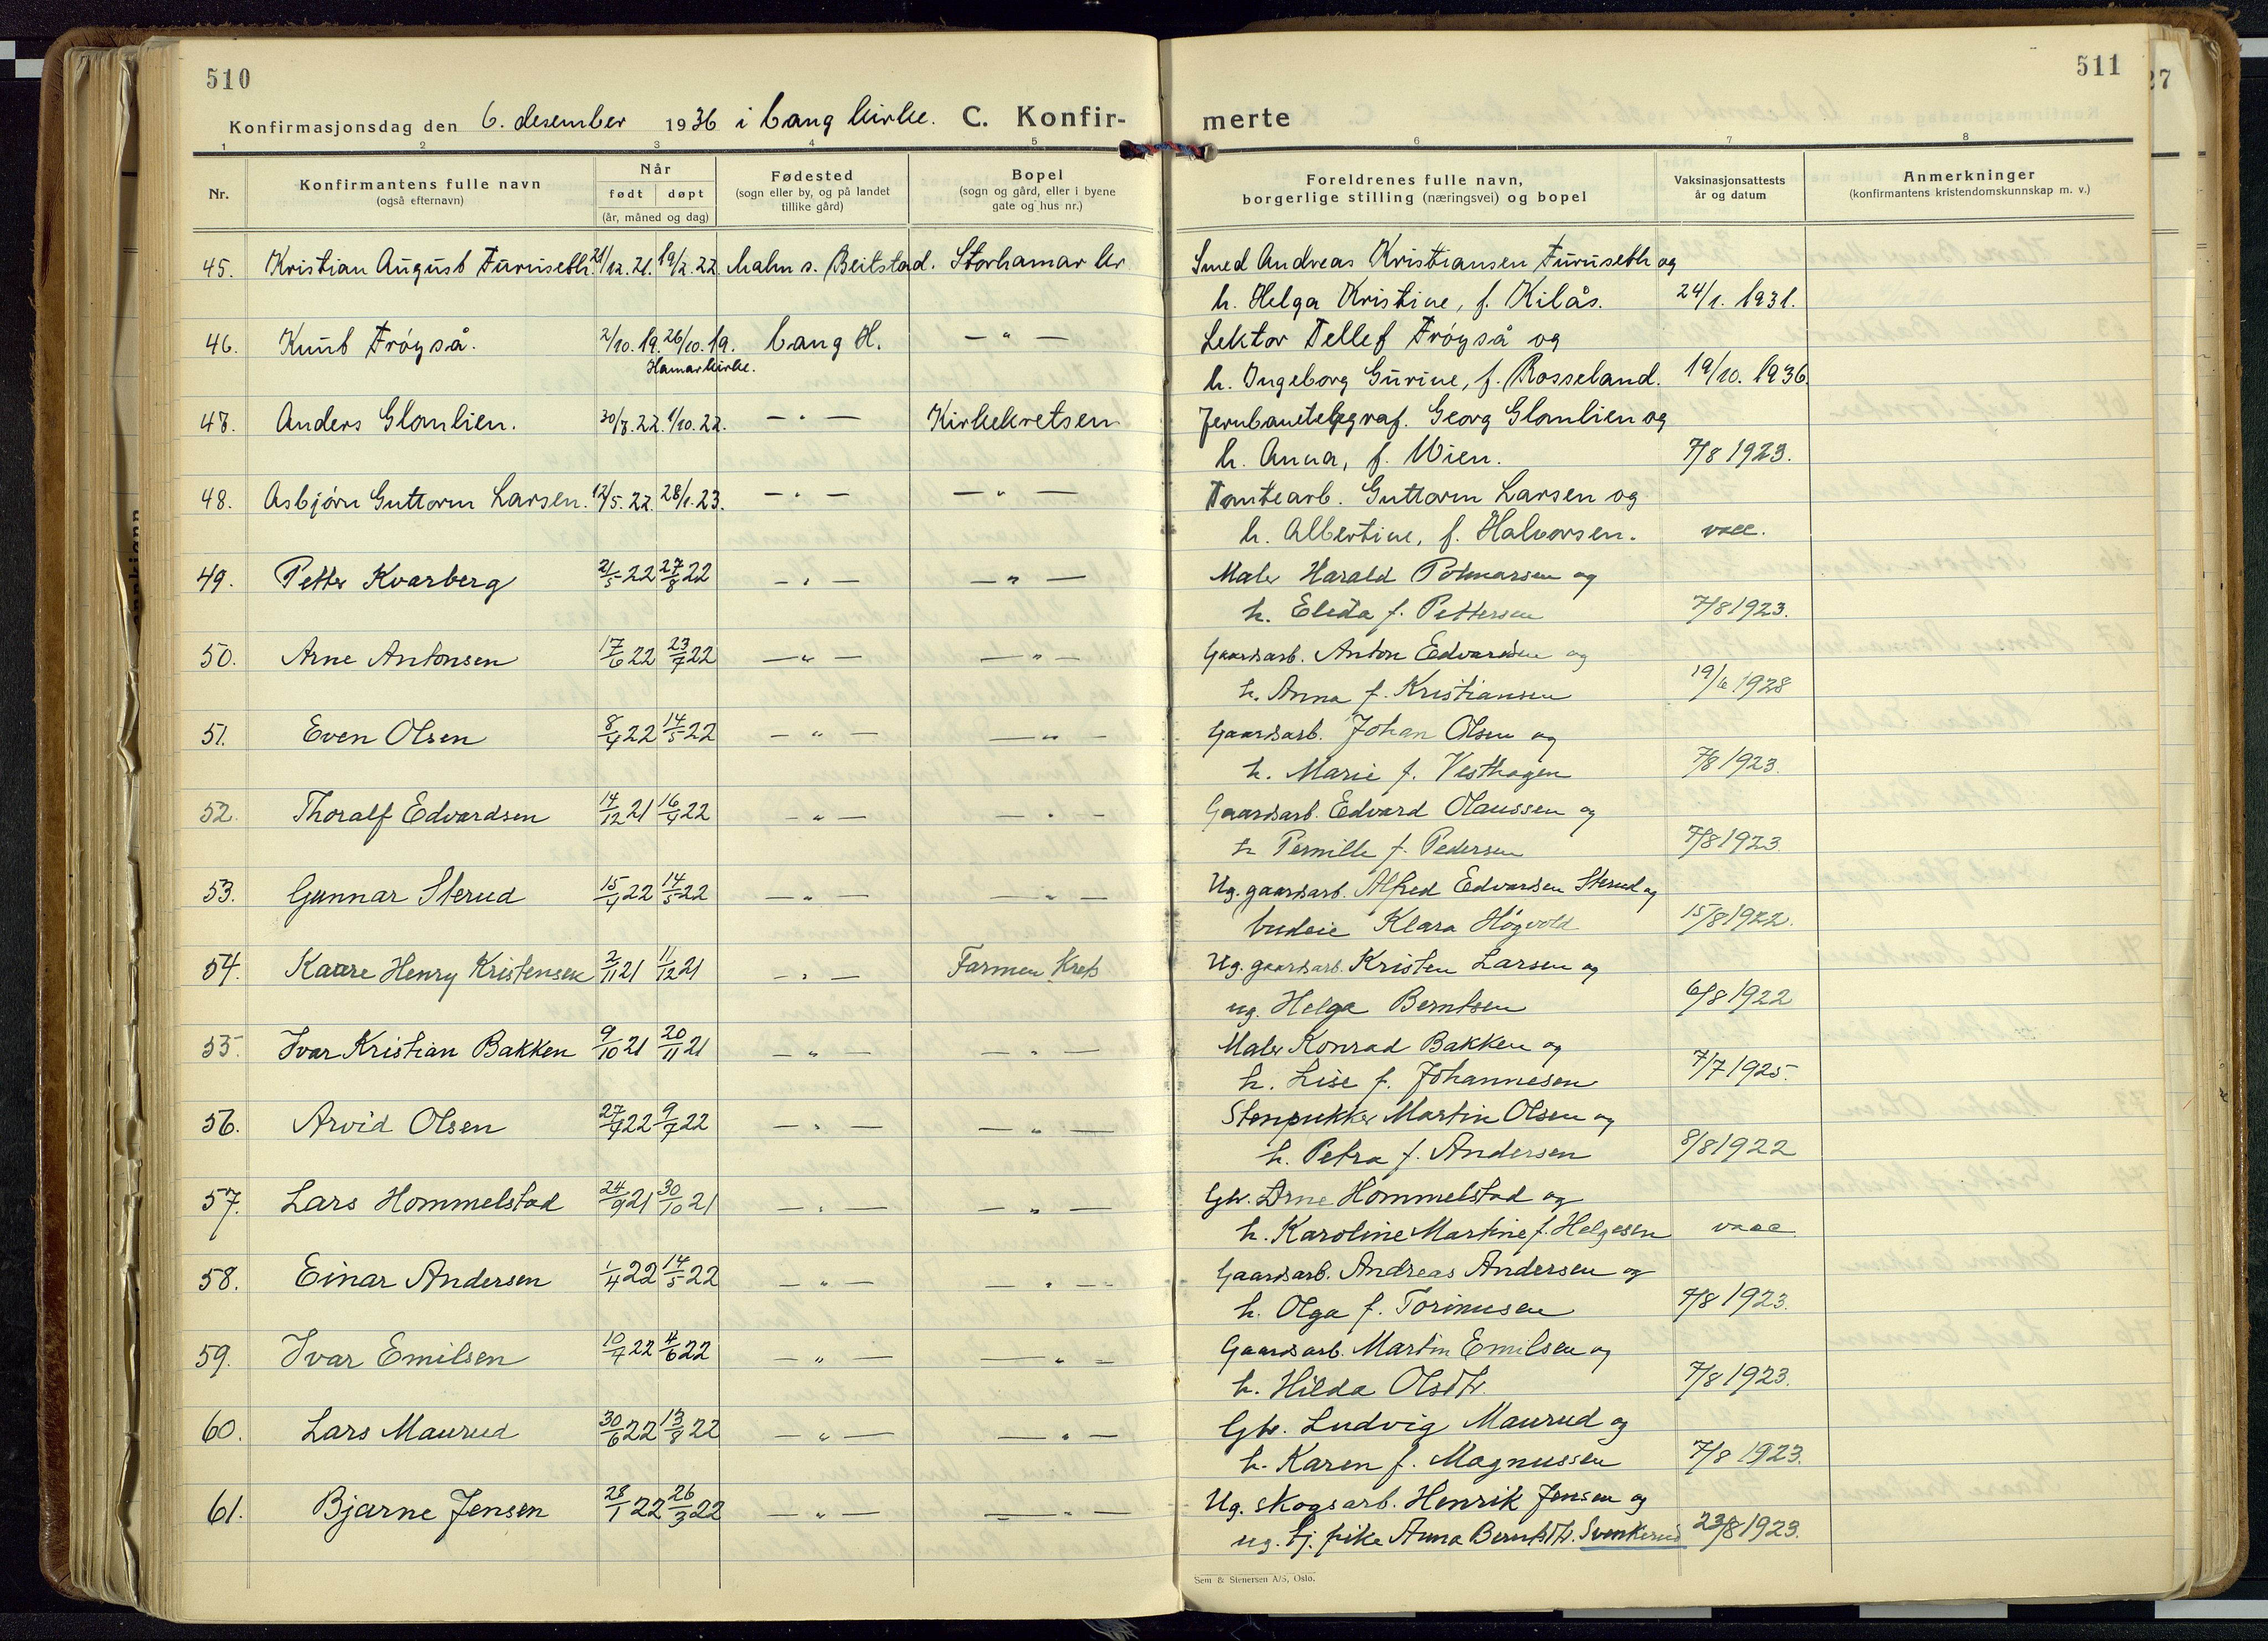 510
Konfirmasjonsdag den 6. desember 1936 i Vang kirke. C. Konfir-
1 2 3 4 5
Nr. Konfirmantens fulle navn (også efternavn) Når født døpt (år, måned og dag) Fødested (sogn eller by, og på landet tillike gård) Bopel (sogn og gård, eller i byene gate og hus nr.)
45. Kristian August Furuseth. 21/12.21. 19/2.22 Malm s. Beitstad. Storhamar kr.
46. Knut Frøyså. 2/10.19. 26/10.19. Vang H. — " —
Hamar kirke.
47. Anders Glomlien. 30/7.22. 1/10.22. — " — Kirkekretsen
48. Asbjørn Guttorm Larsen. 12/5.22. 28/1.23. — " — — " —
49. Petter Kvarberg 21/5 22 27/8 22 — " — — " —
50. Arne Antonsen 17/6 22 23/7 22 — " — — " —
51. Even Olsen 8/4 22 14/5 22 — " — — " —
52. Thoralf Edvardsen 14/12 21 16/4 22 — " — — " —
53. Gunnar Sterud 15/4 22 14/5 22 — " — — " —
54. Kaare Henry Kristensen 2/11 21 11/12 21 — " — Farmen Krets
55. Ivar Kristian Bakken 9/10 21 20/11 21 — " — — " —
56. Arvid Olsen 27/4 22 9/7 22 — " — — " —
57. Lars Hommelstad 24/9 21 30/10 21 — " — — " —
58. Einar Andersen 1/4 22 14/5 22 — " — — " —
59. Ivar Emilsen 10/4 22 4/6 22 — " — — " —
60. Lars Maurud 30/6 22 13/8 22 — " — — " —
61. Bjarne Jensen 28/1 22 26/3 22 — " — — " —
511
27
merte
6 7 8
Foreldrenes fulle navn, borgerlige stilling (næringsvei) og bopel Vaksinasjonsattests år og datum Anmerkninger (konfirmantens kristendomskunnskap m. v.)
Smed Andreas Kristiansen Furuseth og
h. Helga Kristine, f. Kilås. 24/1. 1931.
Lektor Tellef Frøyså og
h. Ingeborg Gurine, f. Rosseland. 19/10. 1936.
Jernbanetelegraf. Georg Glomlien og
h. Anna, f. Wien. 7/8 1923.
Tomtearb. Guttorm Larsen og
h. Albertine, f. Halvorsen. vacc.
Maler Harald Polmarsen og
h. Elida f. Pettersen 7/8 1923.
Gaardsarb. Anton Edvardsen og
h. Anna f. Kristiansen 19/6 1928
Gaardsarb. Johan Olsen og
h. Marie f. Vesthagen 7/8 1923.
Gaardsarb. Edvard Olaussen og
h. Pernille f. Pedersen 7/8 1923.
Ug. gaardsarb. Alfred Edvardsen Sterud og
budeie Klara Høgvold 15/8 1922.
Ug. gaardsarb. Kristen Larsen og
ug. Helga Berntsen 6/8 1922
Maler Konrad Bakken og
h. Lise f. Johannesen 7/7 1925.
Stenpukker Martin Olsen og
h. Petra f. Andersen 8/8 1922
Gbr. Arne Hommelstad og
h. Karoline Martine f. Helgesen vacc.
Gaardsarb. Andreas Andersen og
h. Olga f. Torimusen 7/8 1923.
Gaardsarb. Martin Emilsen og
h. Hilda Olsdtr. 7/8 1923.
Gbr. Ludvig Maurud og
h. Karen f. Magnussen 7/8 1923.
Ug. skogsarb. Henrik Jensen og
ug. tj. pike Anna Berntsdtr. Svenkerud 23/8 1923.
Sem & Stenersen A/S, Oslo.